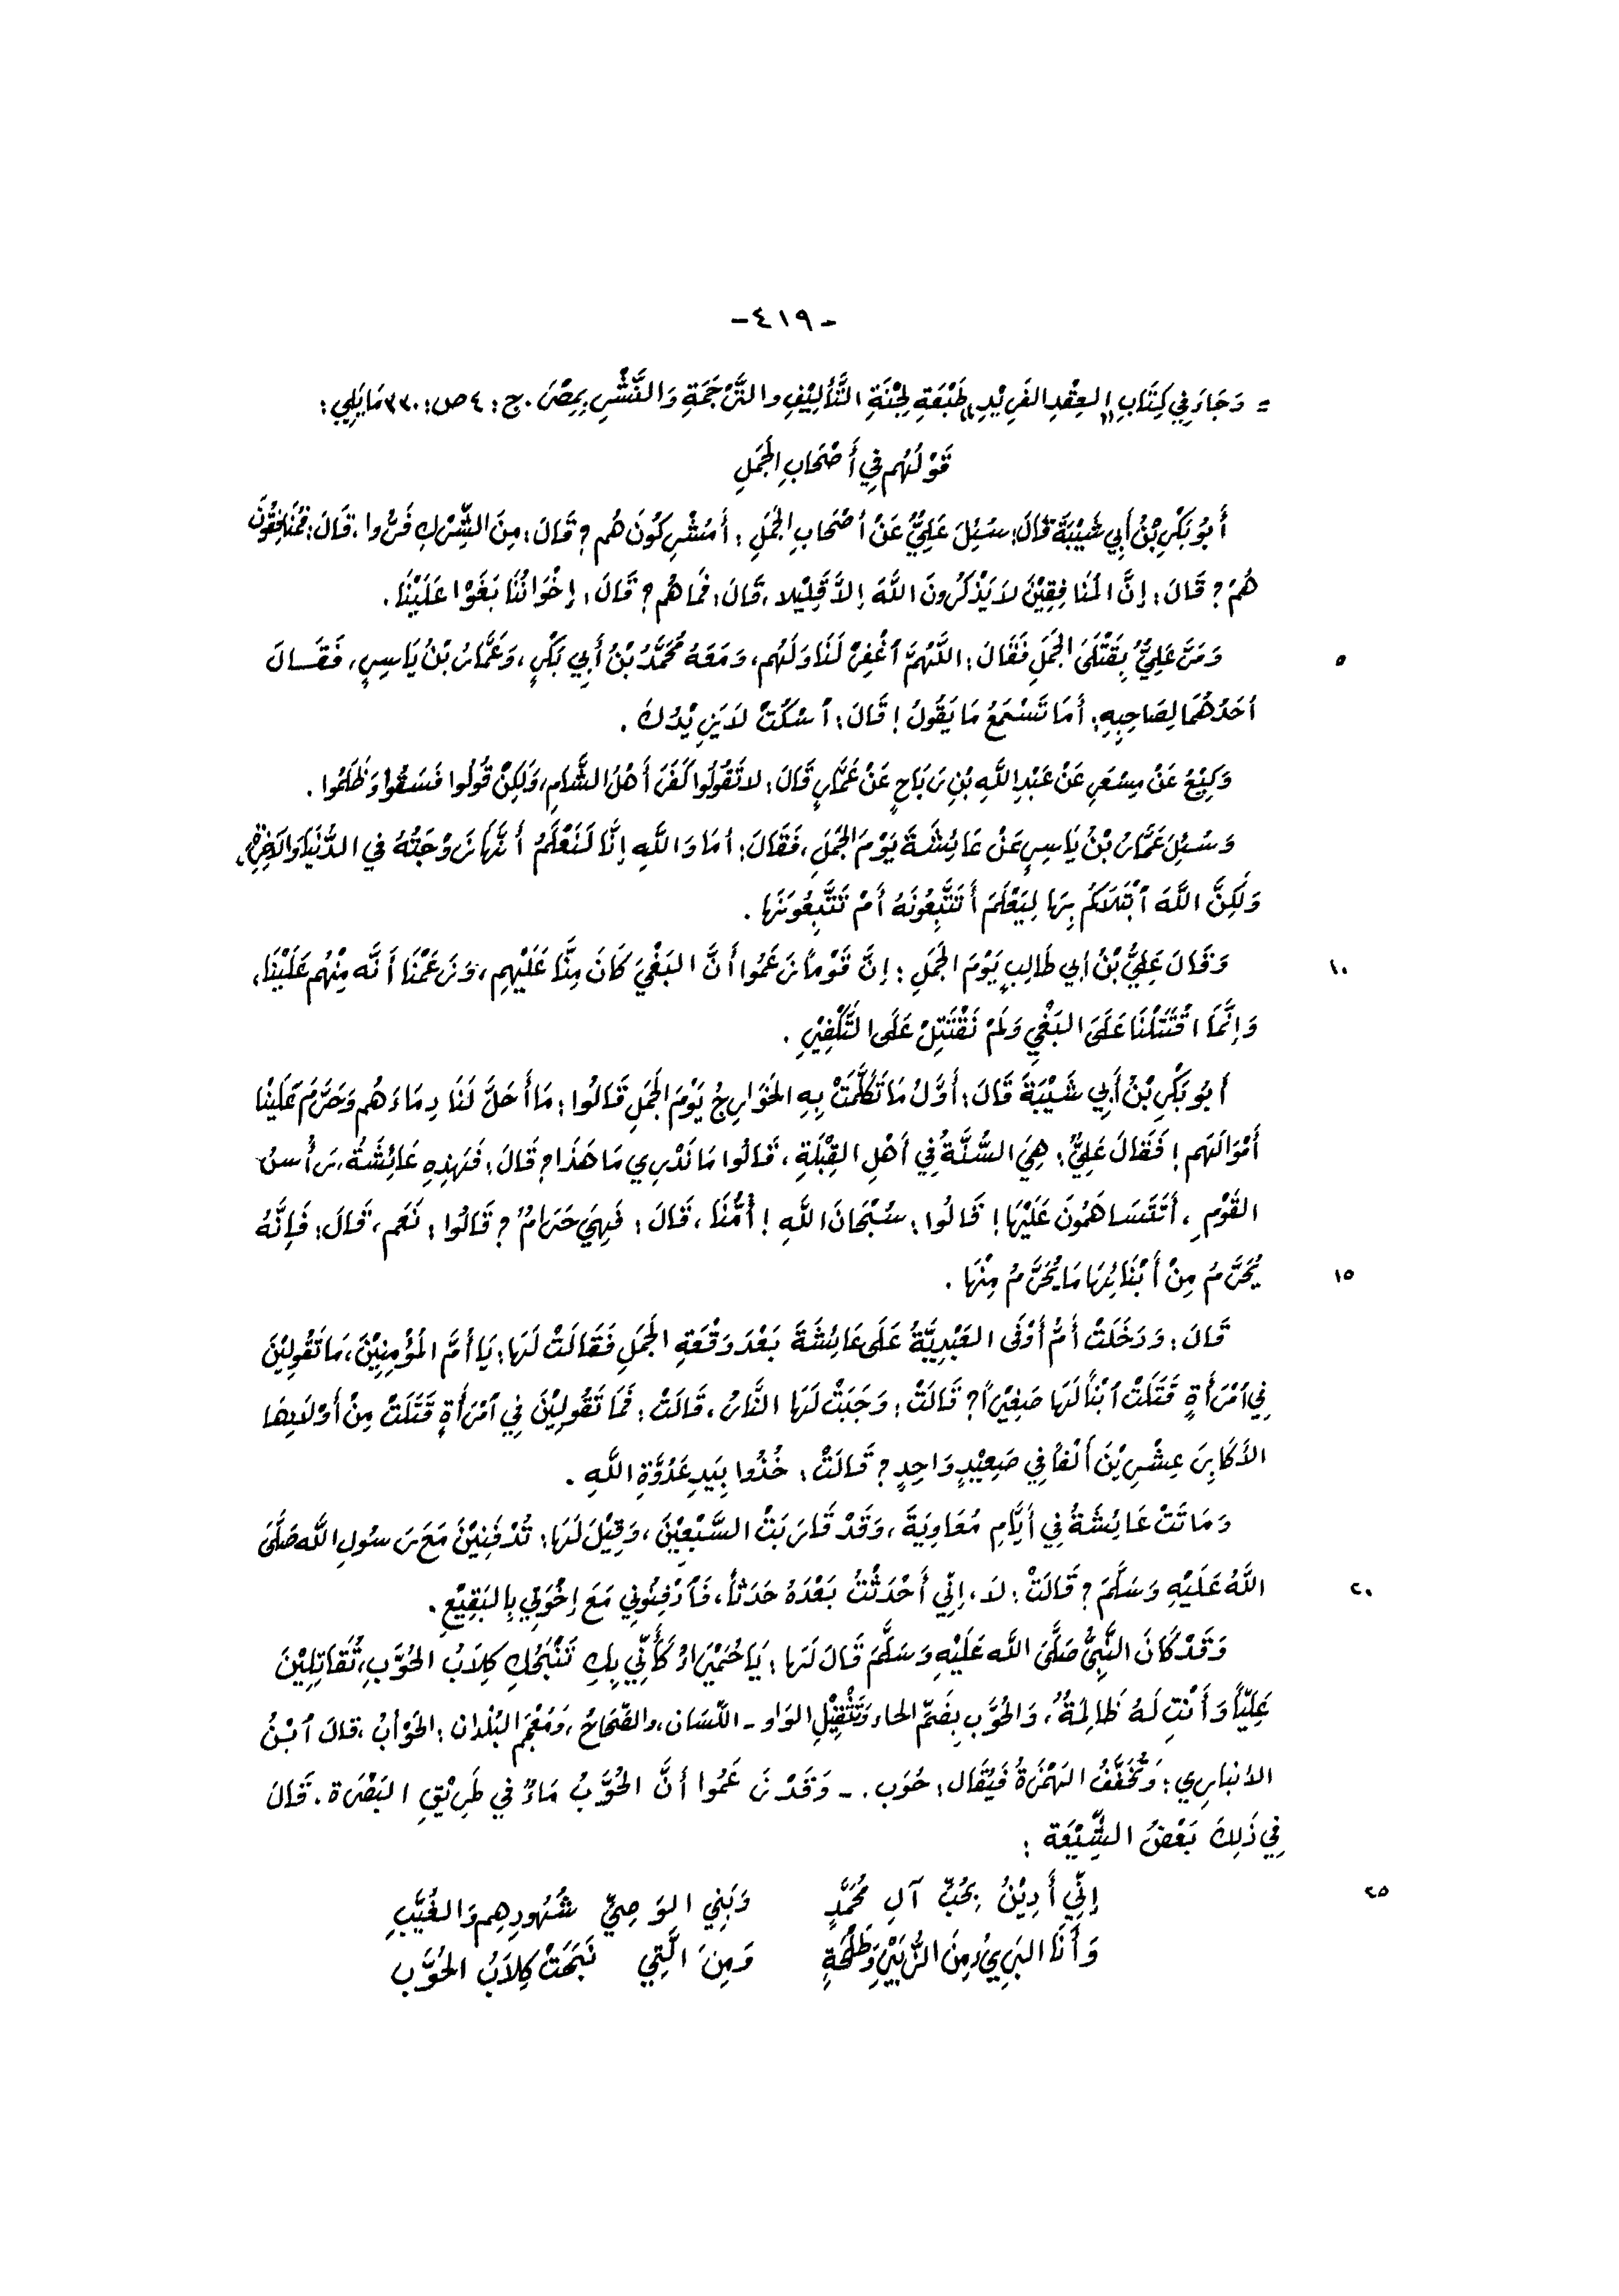 -٤١٩-
= وَجَاءَ فِي كِتَابِ «العِقْدِ الفَرِيْدِ» طَبْعَةِ لِجْنَةِ التَّأْلِيْفِ والتَّرْجَمَةِ وَالنَّشْرِ بِمِصْرَ. ج: ٤ ص: ٣٣٠ مَا يَلِي:
قَوْلُهُم فِي أَصْحَابِ الجَمَلِ
أَبُو بَكْرِ بْنُ أَبِي شَيْبَةَ قَالَ: سُئِلَ عَلِيٌّ عَنْ أَصْحَابِ الجَمَلِ: أَمُشْرِكُونَ هُم؟ قَالَ: مِنَ الشِّرْكِ فَرُّوا، قَالَ: فَمُنَافِقُونَ
هُمْ؟ قَالَ: إِنَّ المُنَافِقِيْنَ لاَ يَذْكُرُونَ اللَّهَ إِلاَّ قَلِيْلا، قَالَ: فَمَا هُم؟ قَالَ: إِخْوَانُنَا بَغَوْا عَلَيْنَا.
٥ وَمَرَّ عَلِيٌّ بِقَتْلَى الجَمَلِ فَقَالَ: اللَّهُمَّ ٱغْفِرْ لَنَا وَلَهُم، وَمَعَهُ مُحَمَّدُ بْنُ أَبِي بَكْرٍ، وَعَمَّارُ بْنُ يَاسِرٍ، فَقَـالَ
أَحَدُهُمَا لِصَاحِبِهِ: أَمَا تَسْمَعُ مَا يَقُولُ! قَالَ: ٱسْكُتْ لاَ يَزِيْدُكَ.
وَكِيْعُ عَنْ مِسْعَرِ عَنْ عَبْدِ اللَّهِ بْنِ رَبَاحٍ عَنْ عَمَّارٍ قَالَ: لا تَقُولُوا كَفَرَ أَهْلُ الشَّامِ، وَلَكِنْ قُولُوا فَسَقُوا وَظَلَمُوا.
وَسُئِلَ عَمَّارُ بْنُ يَاسِرٍ عَنْ عَائِشَةَ يَوْمَ الجَمَلِ، فَقَالَ: أَمَا وَاللَّهِ إِنَّا لَنَعْلَمُ أَنَّهَا زَوْجَتُهُ فِي الدُّنْيَا وَالآخِرَةِ،
وَلَكِنَّ اللَّهَ ٱبْتَلاَكُم بِهَا لِيَعْلَمَ أَتَتَّبِعُونَهُ أَمْ تَتَّبِعُونَهَا.
١٠ وَقَالَ عَلِيُّ بْنُ أَبِي طَالِبٍ يَوْمَ الجَمَلِ: إِنَّ قَوْماً زَعَمُوا أَنَّ البَغْيَ كَانَ مِنَّا عَلَيْهِم، وَزَعَمْنَا أَنَّه مِنْهُم عَلَيْنَا،
وَإِنَّمَا اقْتَتَلْنَا عَلَى البَغْيِ وَلَمْ نَقْتَتِلْ عَلَى التَّكْفِيْرِ.
أَبُو بَكْرِ بْنُ أَبِي شَيْبَةَ قَالَ: أَوَّلُ مَا تَكَلَّمَتْ بِهِ الخَوَارِجُ يَوْمَ الجَمَلِ قَالُوا: مَا أَحَلَّ لَنَا دِمَاءَهُم وَحَرَّمَ عَلَيْنَا
أَمْوَالَهُم! فَقَالَ عَلِيٌّ: هِيَ السُّنَّةُ فِي أَهْلِ القِبْلَةِ، قَالُوا مَا نَدْرِي مَا هَذَا؟ قَالَ: فَهَذِهِ عَائِشَةُ، رَأْسُ
القَوْمِ، أَتَتَسَاهَمُونَ عَلَيْهَا! قَالُوا: سُبْحَانَ اللَّهِ! أُمُّنَا، قَالَ: فَهِيَ حَرَامٌ؟ قَالُوا: نَعَم، قَالَ: فَإِنَّهُ
١٥ يُحَرَّمُ مِنْ أَبْنَائِهَا مَا يُحَرَّمُ مِنْهَا.
قَالَ: وَدَخَلَتْ أُمُّ أَوْفَى العَبْدِيَّةُ عَلَى عَائِشَةَ بَعْدَ وَقْعَةِ الجَمَلِ فَقَالَتْ لَهَا: يَا أُمَّ المُؤْمِنِيْنَ، مَا تَقُولِيْنَ
فِي ٱمْرَأَةٍ قَتَلَتْ ٱبْناً لَهَا صَغِيْراً؟ قَالَتْ: وَجَبَتْ لَهَا النَّارُ، قَالَتْ: فَمَا تَقُولِيْنَ فِي ٱمْرَأَةٍ قَتَلَتْ مِنْ أَوْلاَدِهَا
الأَكَابِرَ عِشْرِيْنَ أَلْفاً فِي صَعِيْدٍ وَاحِدٍ؟ قَالَتْ: خُذُوا بِيَدِ عَدُوَّةِ اللَّهِ.
وَمَاتَتْ عَائِشَةُ فِي أَيَّامِ مُعَاوِيَةَ، وَقَدْ قَارَبَتْ السَّبْعِيْنَ، وَقِيْلَ لَهَا: تُدْفَنِيْنَ مَعَ رَسُولِ اللَّه صَلَّى
٢٠ اللَّهُ عَلَيْهِ وَسَلَّمَ؟ قَالَتْ: لاَ، إِنِّي أَحْدَثْتُ بَعْدَهُ حَدَثاً، فَٱدْفِنُونِي مَعَ إِخْوَتِي بِالبَقِيْعِ.
وَقَدْ كَانَ النَّبِيُّ صَلَّى اللَّه عَلَيْهِ وَسَلَّمَ قَالَ لَهَا: يَا حُمَيْرَاءُ كَأَنِّي بِكِ تَنْبَحُكِ كِلاَبُ الحُوَّبِ، تُقَاتِلِيْنَ
عَلِيّاً وَأَنْتِ لَهُ ظَالِمَةٌ، وَالحُوَّب بِضَمِّ الحاء وَتَثْقِيْلِ الوَاو - اللِّسَان، والصِّحَاحُ، وَمُعْجَم البُلْدان: الحَوْأَبُ، قَالَ ٱبْنُ
الأَنْبَارِي: وَتُخَفَّفُ الهَمْزَةُ فَيُقَال: حُوَب. - وَقَدْ زَعَمُوا أَنَّ الحُوَّبَ مَاءٌ فِي طَرِيْقِ البَصْرَة. قَالَ
فِي ذَلِكَ بَعْضُ الشِّيْعَة:
٢٥ إِنِّي أَدِيْنُ بِحُبِّ آلِ مُحَمَّدٍ وَبَنِي الوَصِيِّ شُهُودِهِم وَالغُيَّبِ
وَأَنَا البَرِيءُ مِنَ الزُّبَيْرِ وَطَلْحَةٍ وَمِنَ الَّتِي نَبَحَتْ كِلاَبُ الحُوَّب